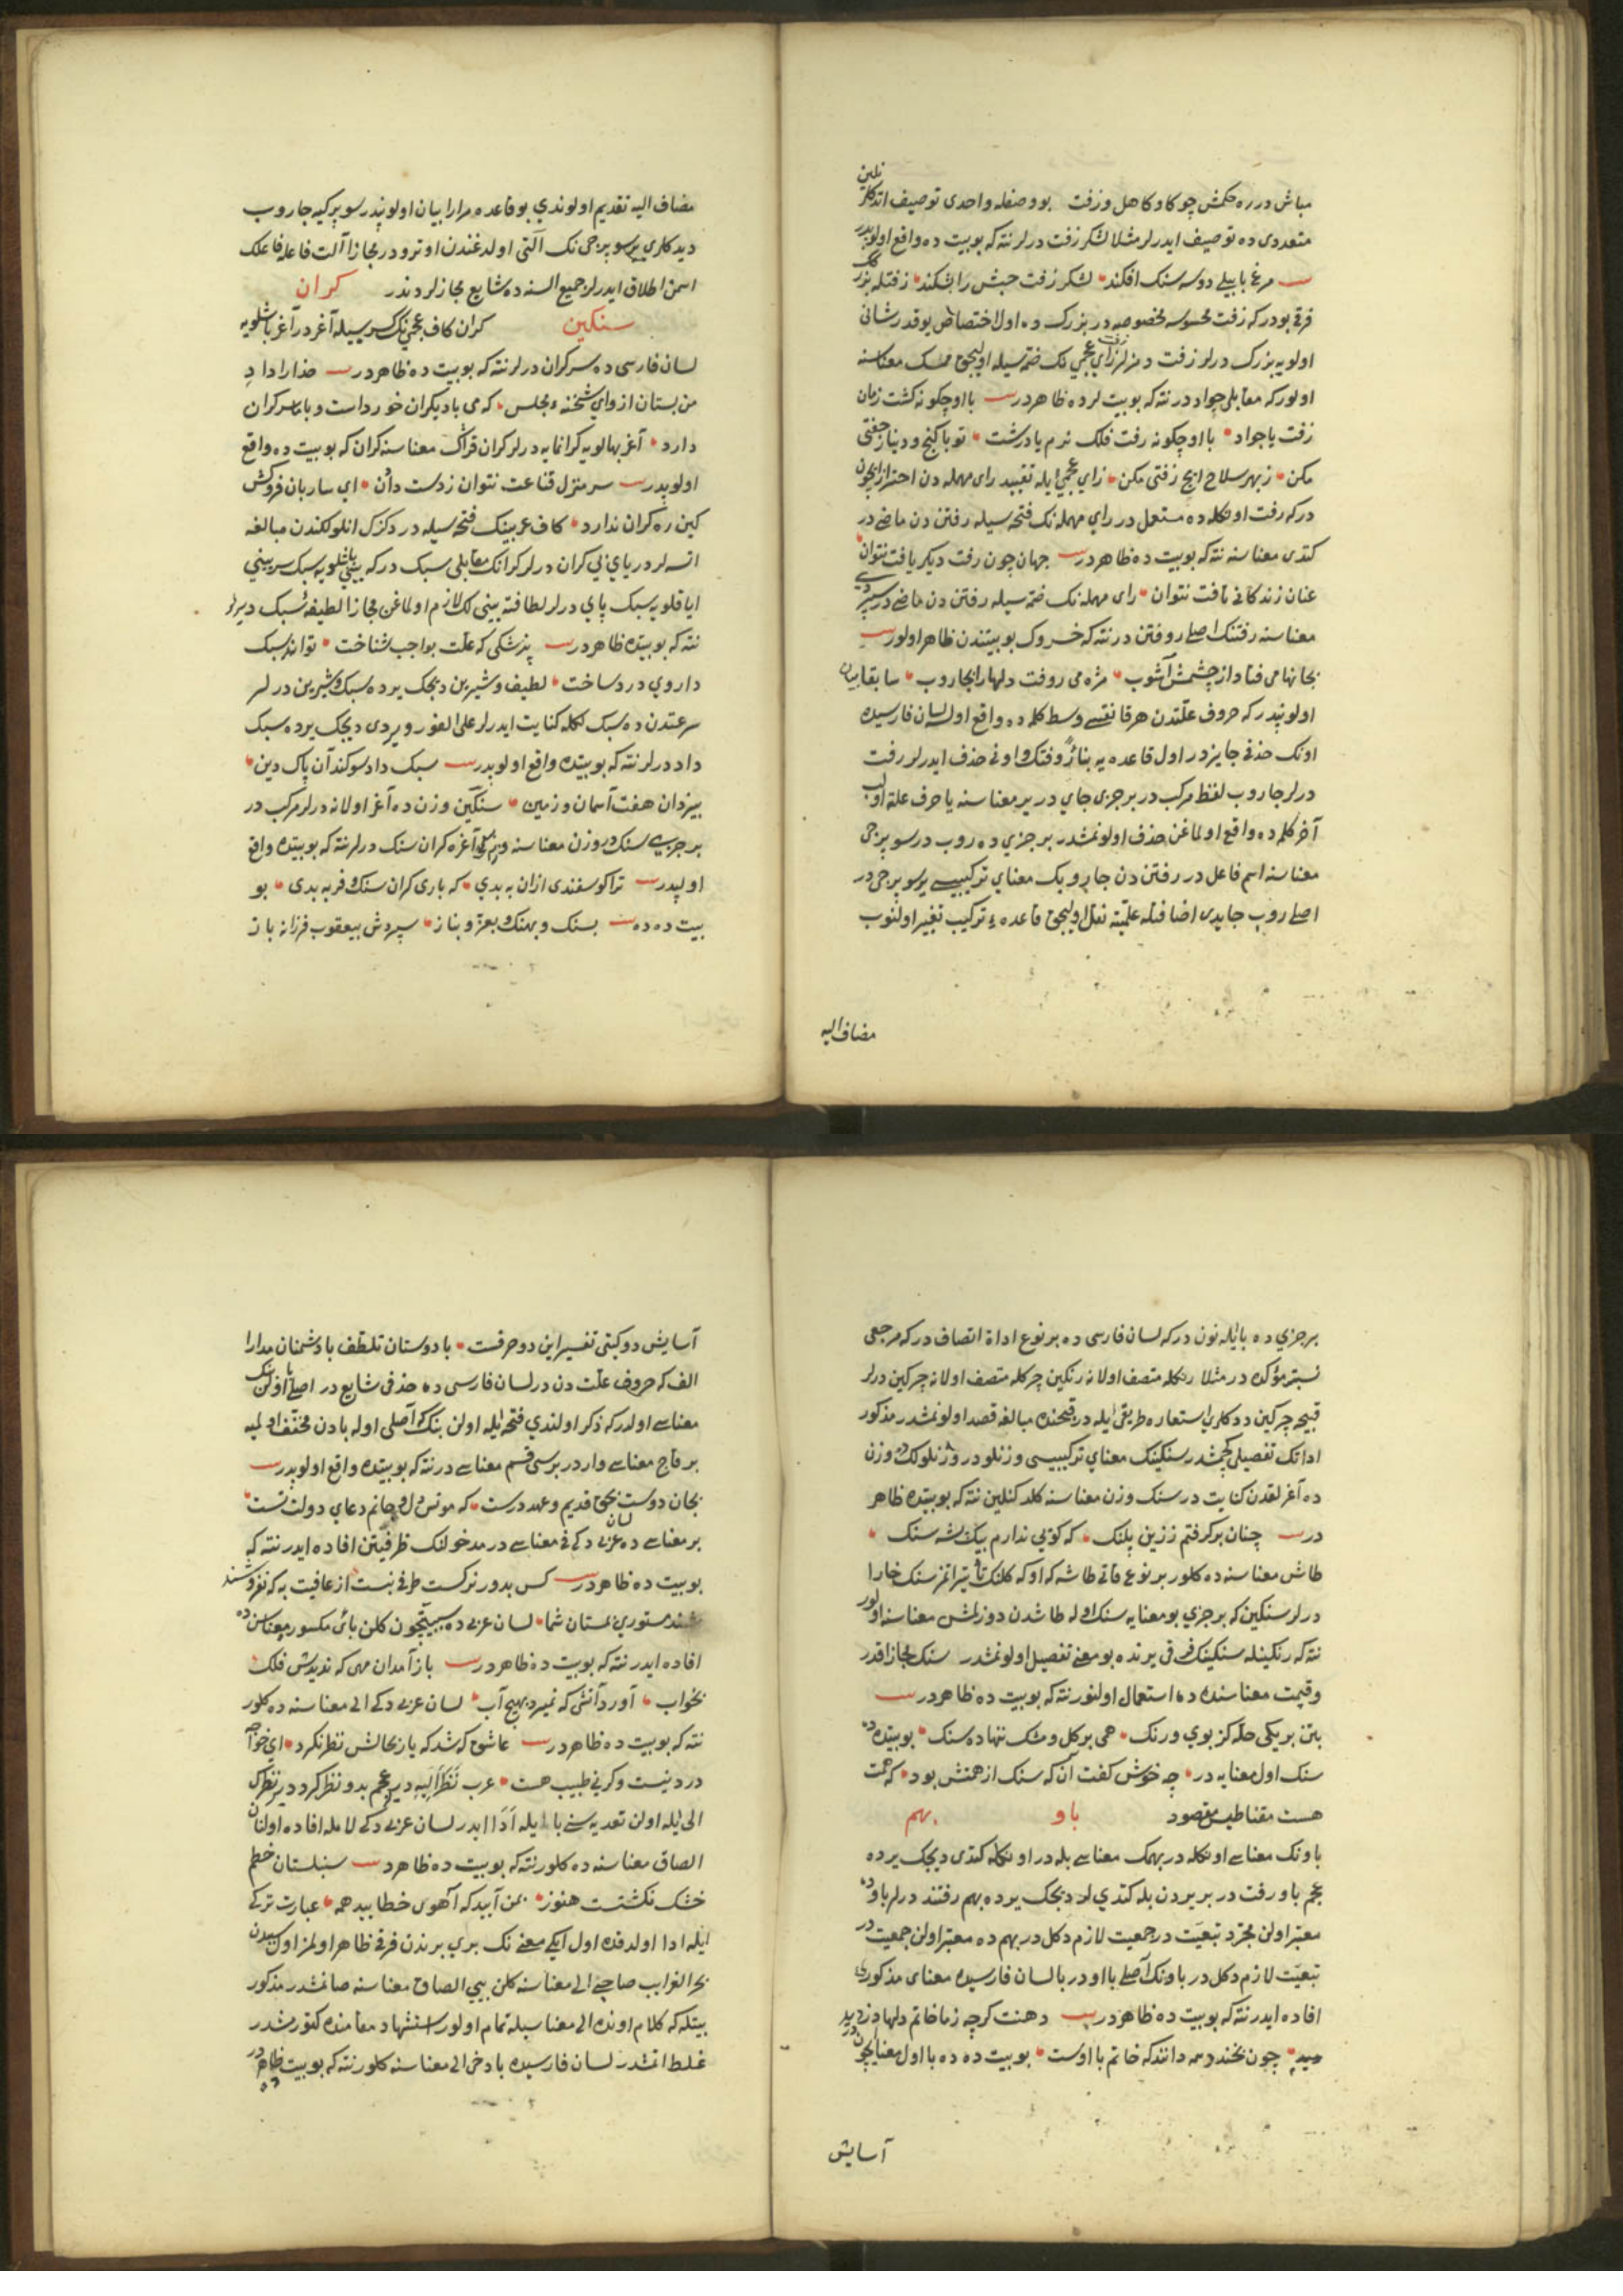 مباش در ره حکمش چو کاو کاهل و زفت بو وصفله واحدی توصیف اتدکلرنلین
متعددی ده توصیف ایدرلر مثلا لشکر زفت درلر نته که بو بیت ده واقع اولوبدر
مرغ بابیلی دوسه سنك افکند لشکر زفت حبش را بشکند زفتله بزرگ
فرقی بودر که زفت محسوسه مخصوصدر بزرك ده اول اختصاص یوقدر شانی
اولویه بزرك درلر زفت دمزلر زفت زای عجمی نك ضمه سیله اولیجق ممسك معناسنه
اولور که مقابلی جواددر نته که بو بیت لرده ظاهردر با او چکونه کشت زمان
زفت یا جواد با او چکونه رفت فلك نرم یا درشت تو با کنج و دینار جفتی
مکن ز بهر سلاح ایچ زفتی مکن زای عجمی ایله تقیید رای مهمله دن احتراز ایچون
درکه رفت اولکله ده مستعمل در رای مهمله نك فتحه سیله رفتن دن ماضی در
کتدی معناسنه نته که بو بیت ده ظاهردر جهان چون رفت دیکر یافت نتوان
عنان زندکانی تافت نتوان رای مهمله نك ضمه سیله رفتن دن ماضی در سپردی
معناسنه رفتنك اصلی روفتن در نته که خسروك بو بیتندن ظاهر اولور
بجانها می فتاد از چشمش آشوب مژه می روفت دلها را بجاروب سابقا بیان
اولونپدر که حروف علتدن هر قانقسی وسط کلمه ده واقع اولسه لسان فارسیده
اونك حذفی جایزدر اول قاعده یه بناءً روفتنك واونی حذف ایدرلر رفت
درلر جاروب لفظ مرکب در بر جزی جای در یر معناسنه یا حرف علة اولوب
آخر کلمه ده واقع اولماغن حذف اولونمشدر بر جزی ده روب در سوپرجی
معناسنه اسم فاعل در رفتن دن جاروبك معنای ترکیبیسی یر سوپرجی در
اصلی روب جایدی اضافتله علمیته نقل اولیجق قاعده ء ترکیب تغییر اولنوب
مضاف الیه
مضاف الیه تقدیم اولوندی بو قاعده مرارا بیان اولونپدر سوپرکیه جاروب
دیدکلری یر سوپرجی نك آلتی اولدغندن اوترودر مجازا آلت فاعله فاعلك
اسمن اطلاق ایدرلر جمیع السنه ده شایع مجازلردندر کران
سنکین کران کاف عجمی نك کسرسیله آغردر آغر باشلویه
لسان فارسی ده سرکران درلر نته که بو بیت ده ظاهردر خدارا داد
من بستان ازوای شحنه ء مجلس که می با دیکران خورداست و با من سر کران
دارد آغر بهالویه کرانمایه درلر کران قراك معناسنه کران که بو بیت ده واقع
اولوبدر سر منزل قناعت نتوان ز دست دادن ای ساربان فروکش
کین ره کران ندارد کاف عربینك فتحه سیله در دکزك انلولکندن مبالغه
اتسه لر دریای بی کران درلر کرانك مقابلی سبك درکه یینی باشلویه سبك سر یینی
ایاقلویه سبك پای درلر لطافته یینی لك لازم اولماغن مجازا لطیفه سبك دیرلر
نته که بو بیتده ظاهردر پزشکی که علت بواجب شناخت تواند سبك
داروی درد ساخت لطیف و شیرین دیجك یرده سبك و شیرین درلر
سرعتدن ده سبك کلمه کنایت ایدرلر علی الفور ویردی دیجك یرده سبك
داد درلر نته که بو بیتده واقع اولوبدر سبك داد سوکند آن پاك دین
بیزدان هفت آسمان و زمین سنکین وزن ده آغر اولانه درلر مرکب در
بر جزیی سنك در وزن معناسنه وزنلو آغره کران سنك درلر نته که بو بیتده واقع
اولپدر ترا کوسفندی ازان به بدی که باری کران سنك و فربه بدی بو
بیت ده ده بسنك و بهنك و بعز و بناز سپردش بیعقوب فرزانه باز
بر جزی ده یا ایله نون درکه لسان فارسی ده بر نوع اداة اتصاف درکه مرجعی
نسبتز مؤکده در مثلا رنکله متصف اولانه رنکین چرکله متصف اولانه چرکین درلر
قبیحه چرکین ددکلری استعاره طریقی ایله در قبحنده مبالغه قصد اولونمشدر مذکور
اداتك تفصیلی کچمشدر سنکینك معنای ترکیبیسی وزنلودر وزنلولك ده وزن
ده آغرلقدن کنایت در سنك وزن معناسنه کلدکنلین نته که بو بیتده ظاهر
در چنان برکرفتم ززین پلنك که کویی ندارم بیك پشه سنك
طاش معناسنه ده کلور بر نوع قاتی طاشه که اوکه کلنك تأثیر اتمز سنك خارا
درلر سنکین که بر جزی بو معنایه سنك اوله طاشدن دوزلمش معناسنه اولور
نته که رنکینله سنکینك فرقی یرنده بو معنی تفصیل اولونمشدر سنك مجازا قدر
و قیمت معناسنده ده استعمال اولنور نته که بو بیت ده ظاهردر
بتن بر یکی حله کز بوی و رنك همی بر کل و مشك ننهاده سنك بو بیتده ده
سنك اول معنایه در چه خوش کفت آن که سنك از همتش بود که همت
هست مقناطیس مقصود باو بهم
باونك معناسی اونکله در بهمك معناسی بله در اونکله کتدی دیجك یرده
عجم باو رفت در بر بردن بله کتدی لر دیجك یرده بهم رفتند درلر باوده
معتبر اولن مجرد تبعیت در جمعیت لازم دکل در بهم ده معتبر اولن جمعیت در
تبعیت لازم دکل در باونك اصلی با اودر با لسان فارسیده معنای مذکوری
افاده ایدر نته که بو بیت ده ظاهردر دهنت کرچه زما خاتم دلها دزدید
چون بخندد همه دانند که خاتم با اوست بو بیت ده ده با اول معنا ایچون در
آسایش
آسایش دو کیتی تفسیر این دو حرفست با دوستان تلطف با دشمنان مدارا
الف که حروف علت دن در لسان فارسی ده حذفی شایع در اصلی با اولن بنك
معناسی اولدر که ذکر اولندی فتحه ایله اولن بنك که اصلی اوله بادن مخفف اولمیه
بر قاچ معناسی واردر برسی قسم معناسی در نته که بو بیتده واقع اولوبدر
بجان دوست بحق قدیم و عهد درست که مونس دل و جانم دعای دولت تست
بر معناسی ده لسان عربی دکی فی معناسی در مدخولنك ظرفیتن افاده ایدر نته که
بو بیت ده ظاهردر کس بدور نرکست طرفی نبست از عافیت به که نفروشند
مستوری بمستان شما لسان عربی ده سببیتچون کلن بای مکسور معناسن ده
افاده ایدر نته که بو بیت ده ظاهردر باز آمدان مهی که ندیدش فلك
بخواب آورد آتشی که نمیرد بهیچ آب لسان عربی دکی الی معناسنه ده کلور
نته که بو بیت ده ظاهردر عاشق که شد که یار بحالش نظر نکرد ای خواجه
درد نیست وکرنی طبیب هست عرب نَظَرَ اِلَیهِ دیر عجم بدو نظر کرد دیر نظرك
الی ایله اولن تعدیه سنی با ایله اَدَا ایدر لسان عربی دکی لامله افاده اولنان
الصاق معناسنه ده کلور نته که بو بیت ده ظاهردر سنبلستان خطم
خشك نکشتست هنوز بمن آیید که آهوی خطایید همه عبارت ترکی
ایله ادا اولدقده اول ایکی معنی نك بری برندن فرقی ظاهر اولمز اول سببدن
بحر الغرایب صاحبی الی معناسنه کلن بیی الصاق معناسنه صانمشدر مذکور
بیتله که کلام اونده الی معناسیله تمام اولور استشهاد مقامنده کتورمشدر
غلط اتمشدر لسان فارسیده با دخی الی معناسنه کلور نته که بو بیت ده ظاهردر